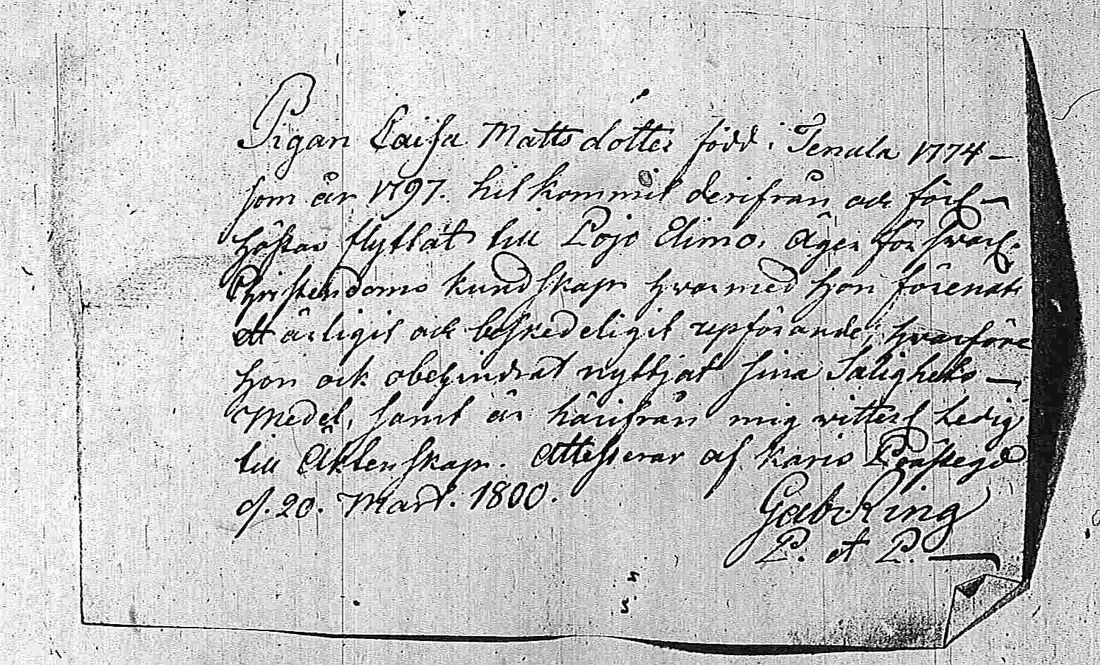 Pigan Caisa Mattsdotter född i Tenala 1774 –
som år 1797. hit kommit derifrån och förl. –
Höstas flyttat till Lojo Elimo, Äger försvarl.
Christendoms kundskap hvarmed hon förenat
ett ärligit och beskedeligit upförande, hvarföre
hon ock obehindrat nyttjat sina Salighets –
Medel, samt är härifrån mig vitterl. ledig
till Äktenskap. Attesterar af Karis Prästegd
d. 20. Mart. 1800.
Gab. Ring
P. et P. –